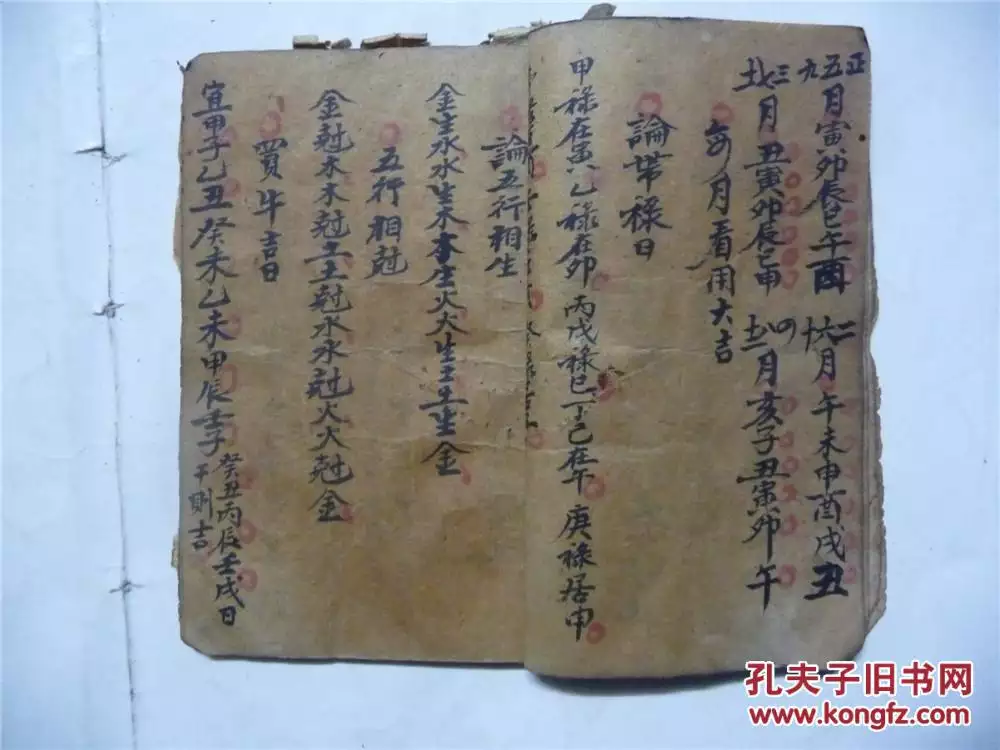 正五九月寅卯辰巳午酉 二六十月午未申酉戌丑
三七十一月丑寅卯辰巳申 四八十二月亥子丑寅卯午
每月看用大吉
論帶禄日
甲禄在寅乙禄在卯丙戊禄巳丁己在午庚禄居申
論五行相生
金生水水生木木生火火生土土生金
五行相尅
金尅木木尅土土尅水水尅火火尅金
買牛吉日
宜甲子乙丑癸未乙未甲辰壬子癸丑丙辰壬戌日
干則吉
孔夫子旧书网
www.kongfz.com